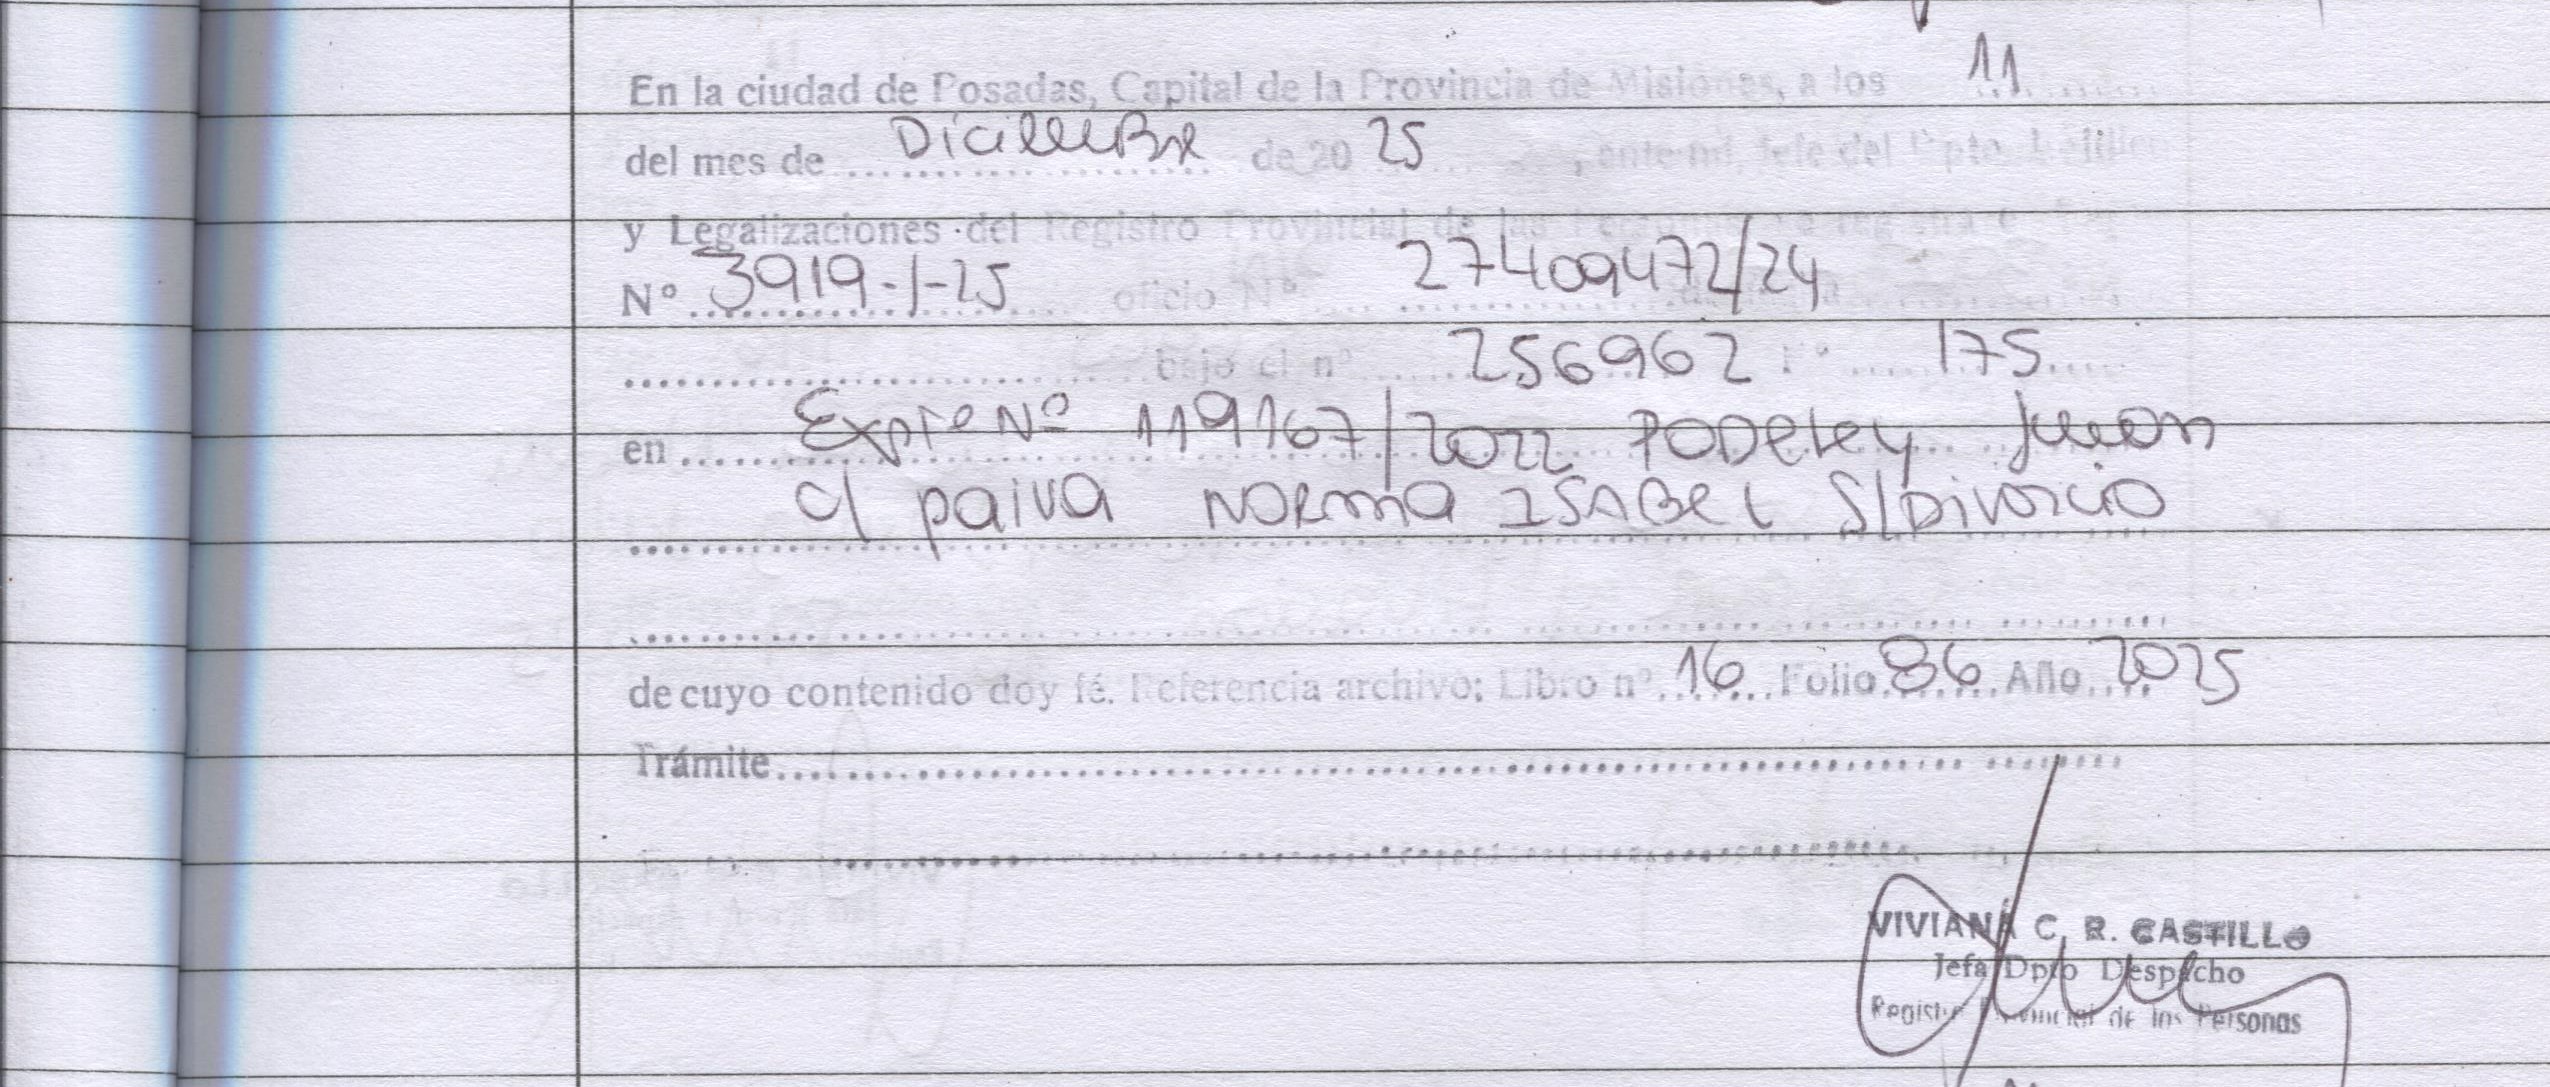 En la ciudad de Posadas, Capital de la Provincia de Misiones, a los 11
del mes de Diciembre de 20 25, ante mi, Jefe del Dpto.
y Legalizaciones del Registro Provincial de las
Nº 3919-1-25 oficio Nº 27409472/24
bajo el nº 256962 Fº 175
en Expte Nº 119167/2022 PODELEY Juan
c/ paiva NORma ISABEL S/Divorcio
de cuyo contenido doy fé. Referencia archivo: Libro nº 16 Folio 86 Año 2025
Trámite
VIVIANA C. R. CASTILLO
Jefa Dpto Despacho
Registro Provincial de las Personas